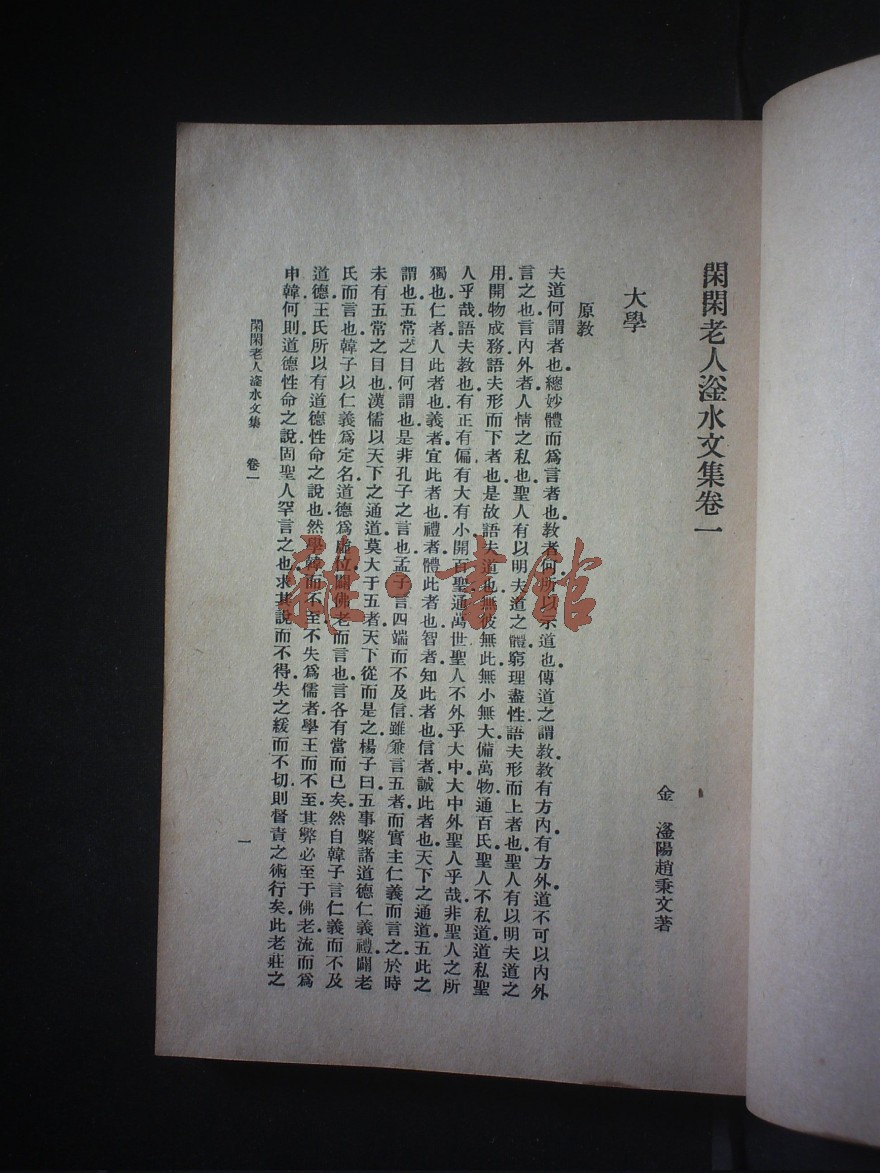 閑閑老人滏水文集卷一
金　滏陽趙秉文著
大學
原教
夫道何謂者也。總妙體而爲言者也。教者何。所以示道也。傳道之謂教。教有方內。有方外。道不可以內外
言之也。言內外者。人情之私也。聖人有以明夫道之體。窮理盡性。語夫形而上者也。聖人有以明夫道之
用。開物成務。語夫形而下者也。是故語夫道也。無彼無此。無小無大。備萬物。通百氏。聖人不私道。道私聖
人乎哉。語夫教也。有正有偏。有大有小。開百聖。通萬世。聖人不外乎大中。大中外聖人乎哉。非聖人之所
獨也。仁者人此者也。義者宜此者也。禮者體此者也。智者知此者也。信者誠此者也。天下之通道五。此之
謂也。五常之目何謂也。是非孔子之言也。孟子言四端而不及信。雖兼言五者。而實主仁義而言之。於時
未有五常之目也。漢儒以天下之通道莫大于五者。天下從而是之。楊子曰。五事繫諸道德仁義禮。闢老
氏而言也。韓子以仁義爲定名。道德爲虛位。闢佛老而言也。言各有當而已矣。然自韓子言仁義而不及
道德。王氏所以有道德性命之說也。然學韓而不至。不失爲儒者。學王而不至。其弊必至于佛老。流而爲
申韓。何則。道德性命之說。固聖人罕言之也。求其說而不得。失之緩而不切。則督責之術行矣。此老莊之
閑閑老人滏水文集　卷一
一
雜·書館